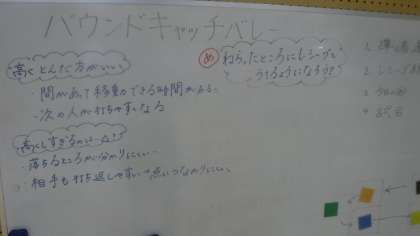 バウンドキャッチバレー
高くとんだ方がいい
・間があって移動できる時間がある。
・次の人が打ちやすくなる
高くしすぎるのは…
・落ちるところが分かりにくい
・相手も打ち返しやすい→点につながりにくい。
め ねらったところにレシーブを
うけるようになろう
1.
2. レシーブ
3.
4. 試合